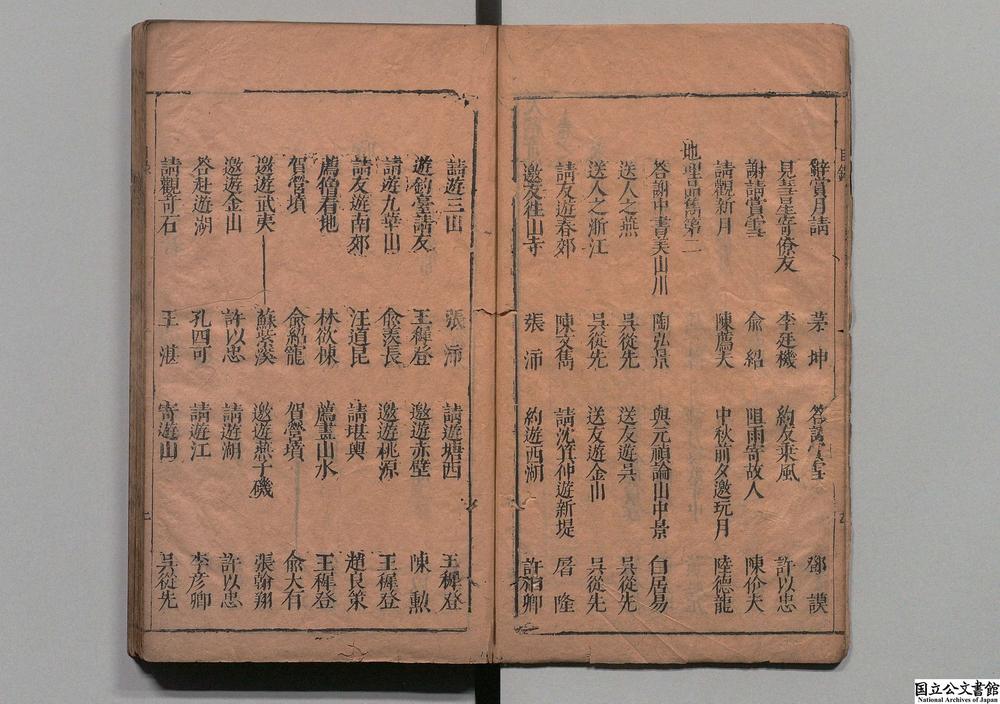 辭賞月請 茅坤 答請賞雪 鄧謨
見彗星寄僚友 李廷機 約友乘風 許以忠
謝請賞雪 俞紹 阻雨寄故人 陳价夫
請觀新月 陳薦夫 中秋前夕邀玩月 陸德龍
地理品雋第二
答謝中書美山川 陶弘景 與元禎論山中景 白居易
送人之燕 吳從先 送友遊吳 吳從先
送人之浙江 吳從先 送友遊金山 吳從先
請友遊春郊 陳文雋 請沈箕仲遊新堤 屠隆
邀友往山寺 張沛 約遊西湖 許相卿
請遊三山 張沛 請遊塘西 王穉登
遊釣臺請友 王穉登 邀遊赤壁 陳勲
請遊九華山 俞羨長 邀遊桃源 王穉登
請友遊南郊 汪道昆 請堪輿 趙良策
薦僧看地 林欲棟 薦畫山水 王穉登
賀營墳 俞紹龍 賀營墳 俞大有
邀遊武夷 蘇紫溪 邀遊燕子磯 張翰翔
邀遊金山 許以忠 請遊湖 許以忠
答赴遊湖 孔四可 請遊江 李彥卿
請觀奇石 王湛 寄遊山 吳從先
国立公文書館
National Archives of Japan